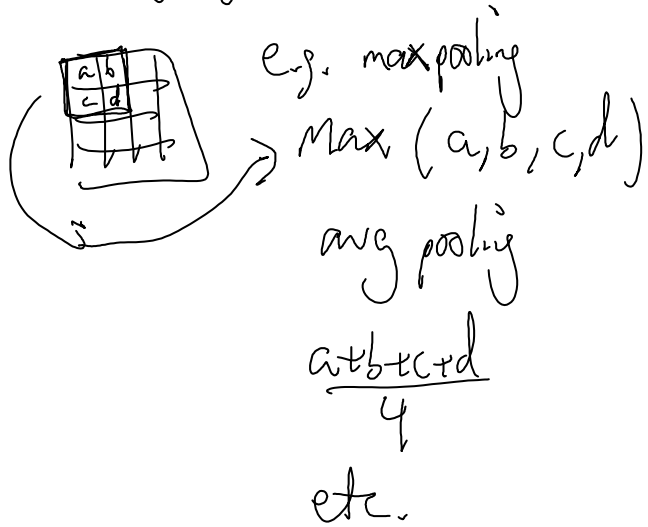 a b
c d
e.g. maxpooling
Max (a, b, c, d)
avg pooling
a+b+c+d
4
etc.